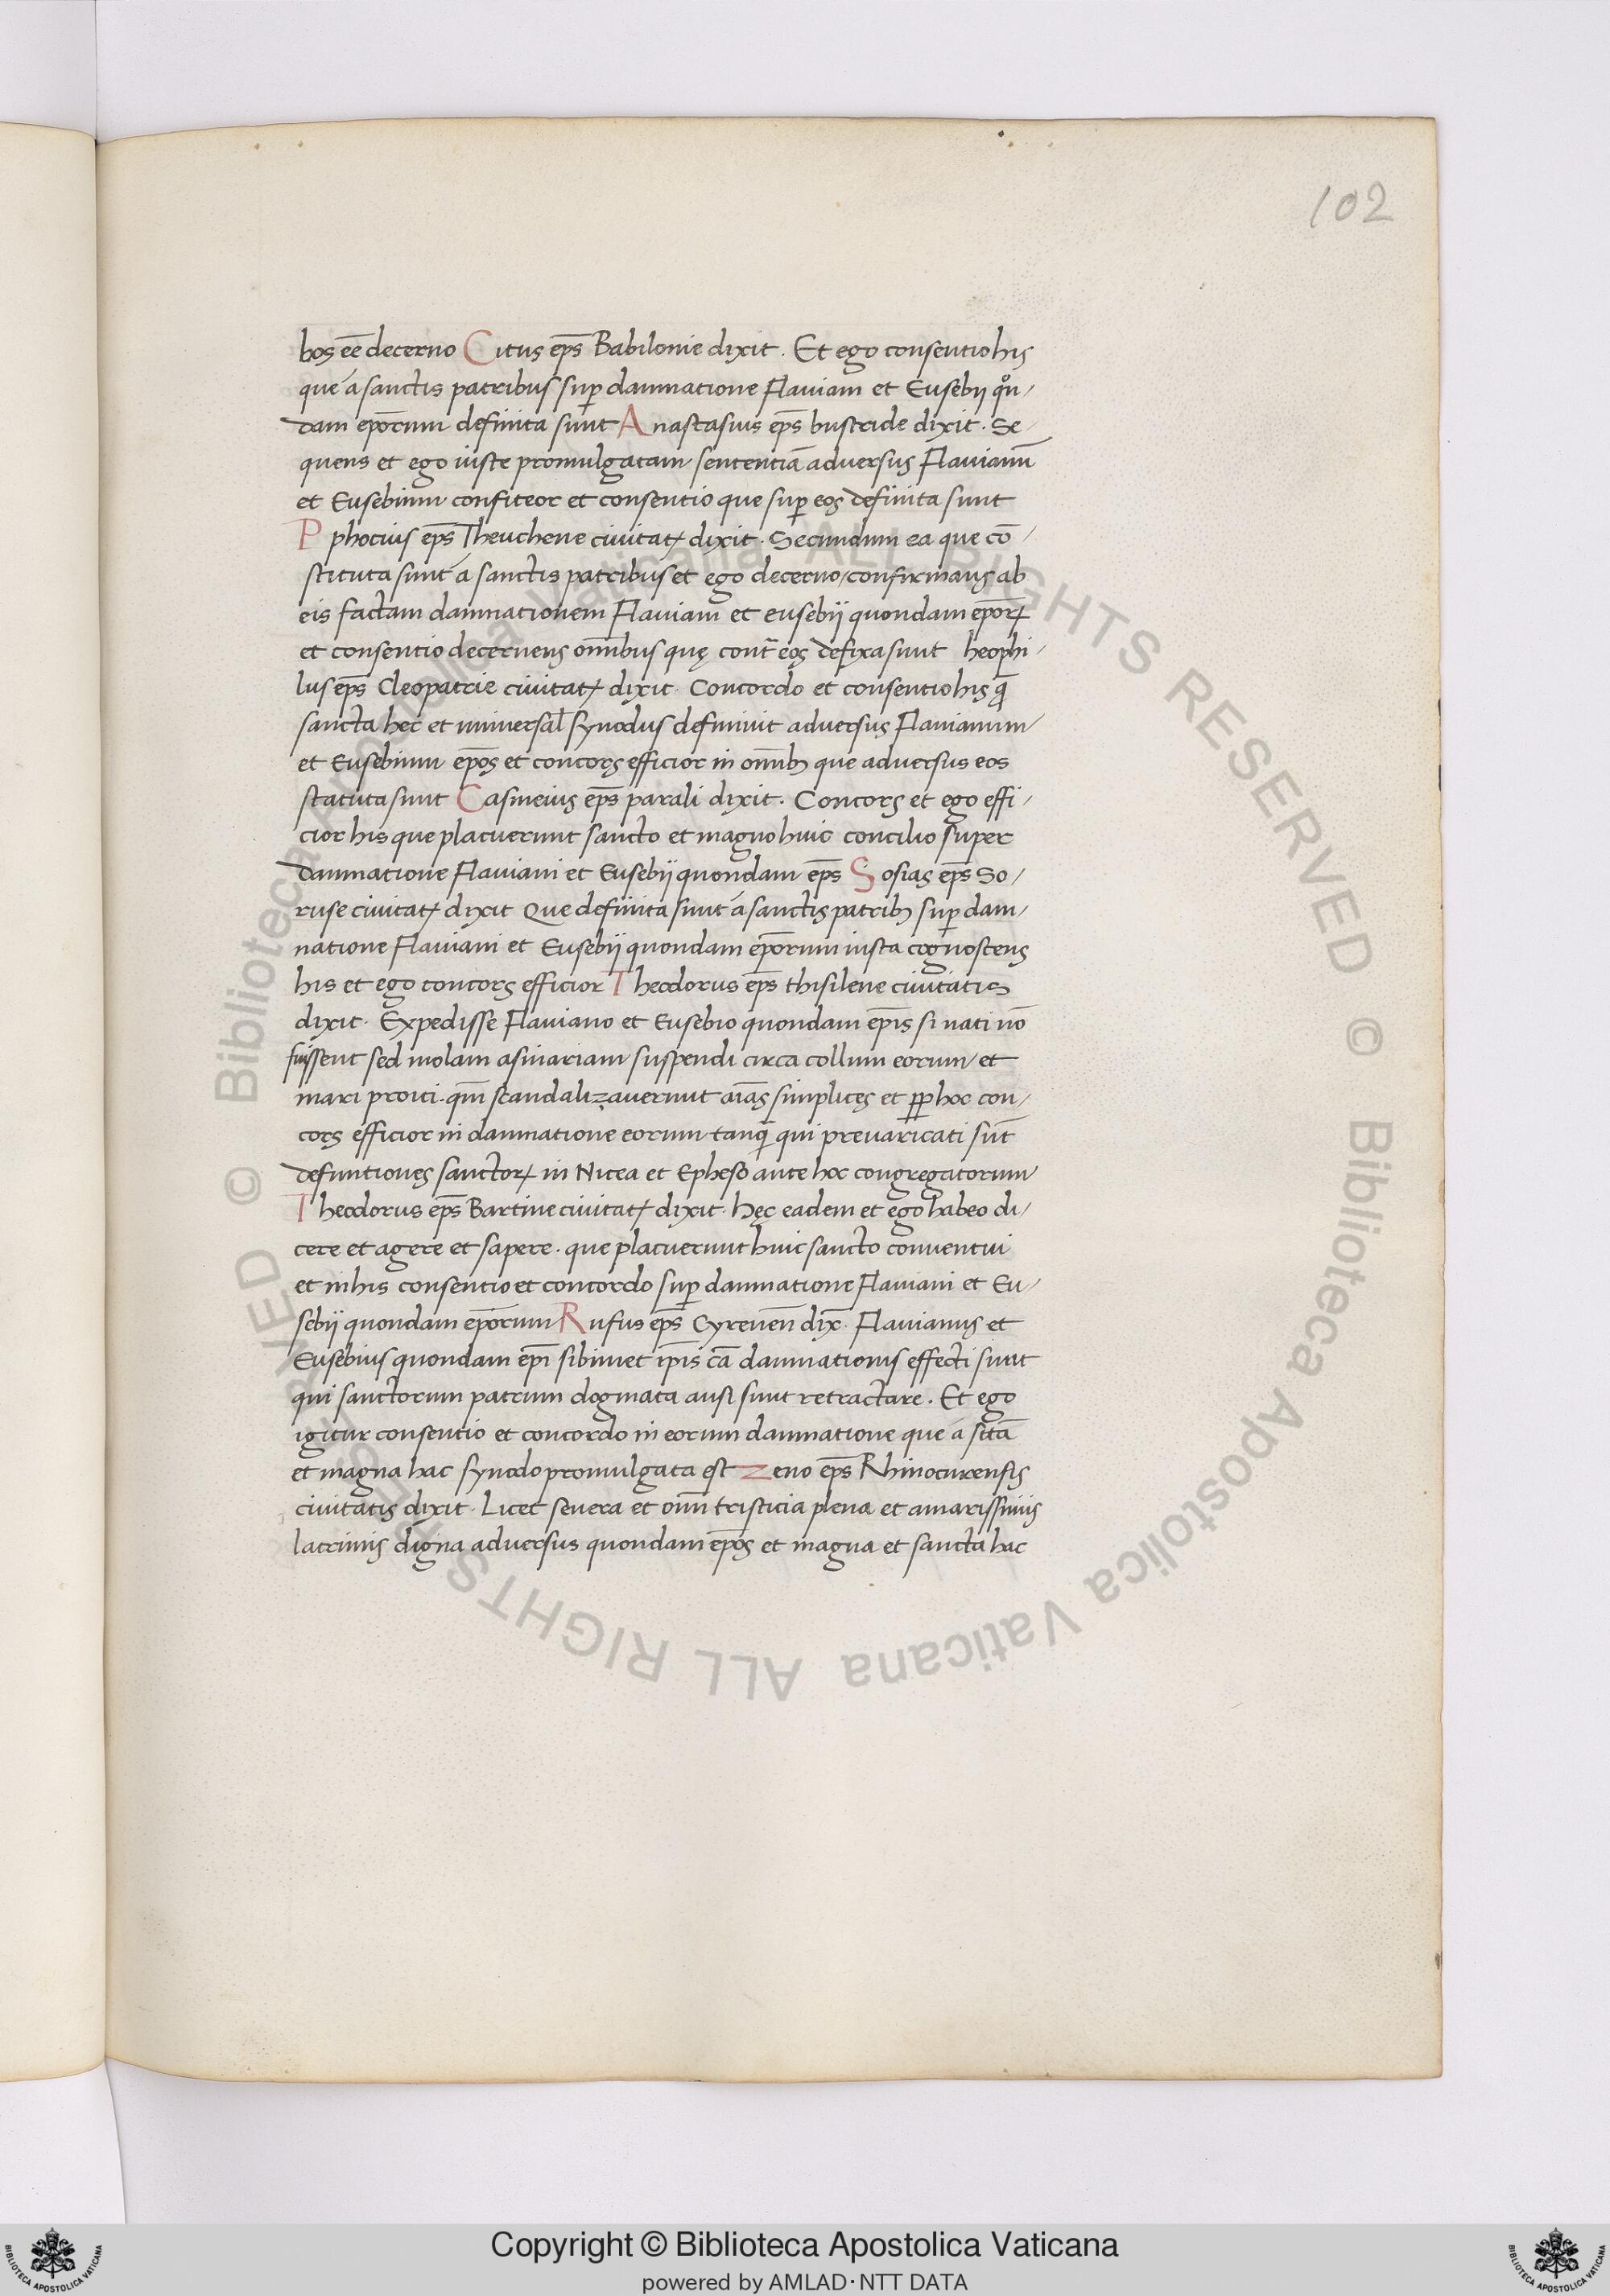 102
bos eē decerno Citus ep̄s Babilonie dixit. Et ego consentio his
que á sanctis patribus sup̱ damnatione Flaviani et Eusebij qn̊/
dam ep̄orum definita sunt Anastasius ep̄s bustride dixit. Se/
quens et ego iuste promulgatam sententiā adversus Flavianū
et Eusebium confiteor et consentio que sup̱ eos definita sunt
P phocius ep̄s Theuchene civitatꝭ dixit. Secundum ea que cō/
stituta sunt á sanctis patribus et ego decerno/confirmans ab
eis factam damnationem Flaviani et eusebij quondam ep̄orꝝ
et consentio decernens om̄ibus quę cont̄ eos defixa sunt heophi/
lus ep̄s Cleopatrie civitatꝭ dixit. Concordo et consentio his q̄
sancta hec et universal̄ synodus definivit adversus Flavianum/
et Eusebium ep̄os et concors efficior in om̄ibꝫ que adversus eos
statuta sunt Casineius ep̄s parali dixit. Concors et ego effi/
cior his que placuerunt sancto et magno huic concilio super
damnatione Flaviani et Eusebij quondam ep̄s Sosias ep̄s So/
ruse civitatꝭ dixit Que definita sunt á sanctis patribꝫ sup̱ dam/
natione Flaviani et Eusebij quondam ep̄orum iusta cognoscens
his et ego concors efficior Theodorus ep̄s thisilene civitatis
dixit. Expedisse Flaviano et Eusebio quondam ep̄is si nati nō
fuissent sed molam asinariam suspendi circa collum eorum/et
mari proici. qm̄ scandalizaverunt aīas simplices et ꝓp hoc con/
cors efficior in damnatione eorum tanq̄ qui prevaricati sūt
definitiones sanctorꝝ in Nicea et Epheso ante hoc congregatorum
Theodorus ep̄s Bartine civitatꝭ dixit. hęc eadem et ego habeo di/
cere et agere et sapere. que placuerunt huic sancto conventui
et in his consentio et concordo sup̱ damnatione Flaviani et Eu/
sebij quondam ep̄orum Rufus ep̄s Cyreneñ dix̄. Flavianus et
Eusebius quondam ep̄i sibimet ip̄is cā damnationis effecti sunt
qui sanctorum patrum dogmata ausi sunt retractare. Et ego
igitur consentio et concordo in eorum damnatione que á sctā
et magna hac synodo promulgata est Zeno ep̄s Rhinocurensis
civitatis dixit. Licet severa et om̄i tristicia plena et amarissimis
lacrimis digna adversus quondam ep̄os et magna et sancta hac
© Biblioteca Apostolica Vaticana ALL RIGHTS RESERVED © Biblioteca Apostolica Vaticana ALL RIGHTS RESERVED
Copyright © Biblioteca Apostolica Vaticana
powered by AMLAD·NTT DATA
BIBLIOTECA APOSTOLICA VATICANA
BIBLIOTECA APOSTOLICA VATICANA